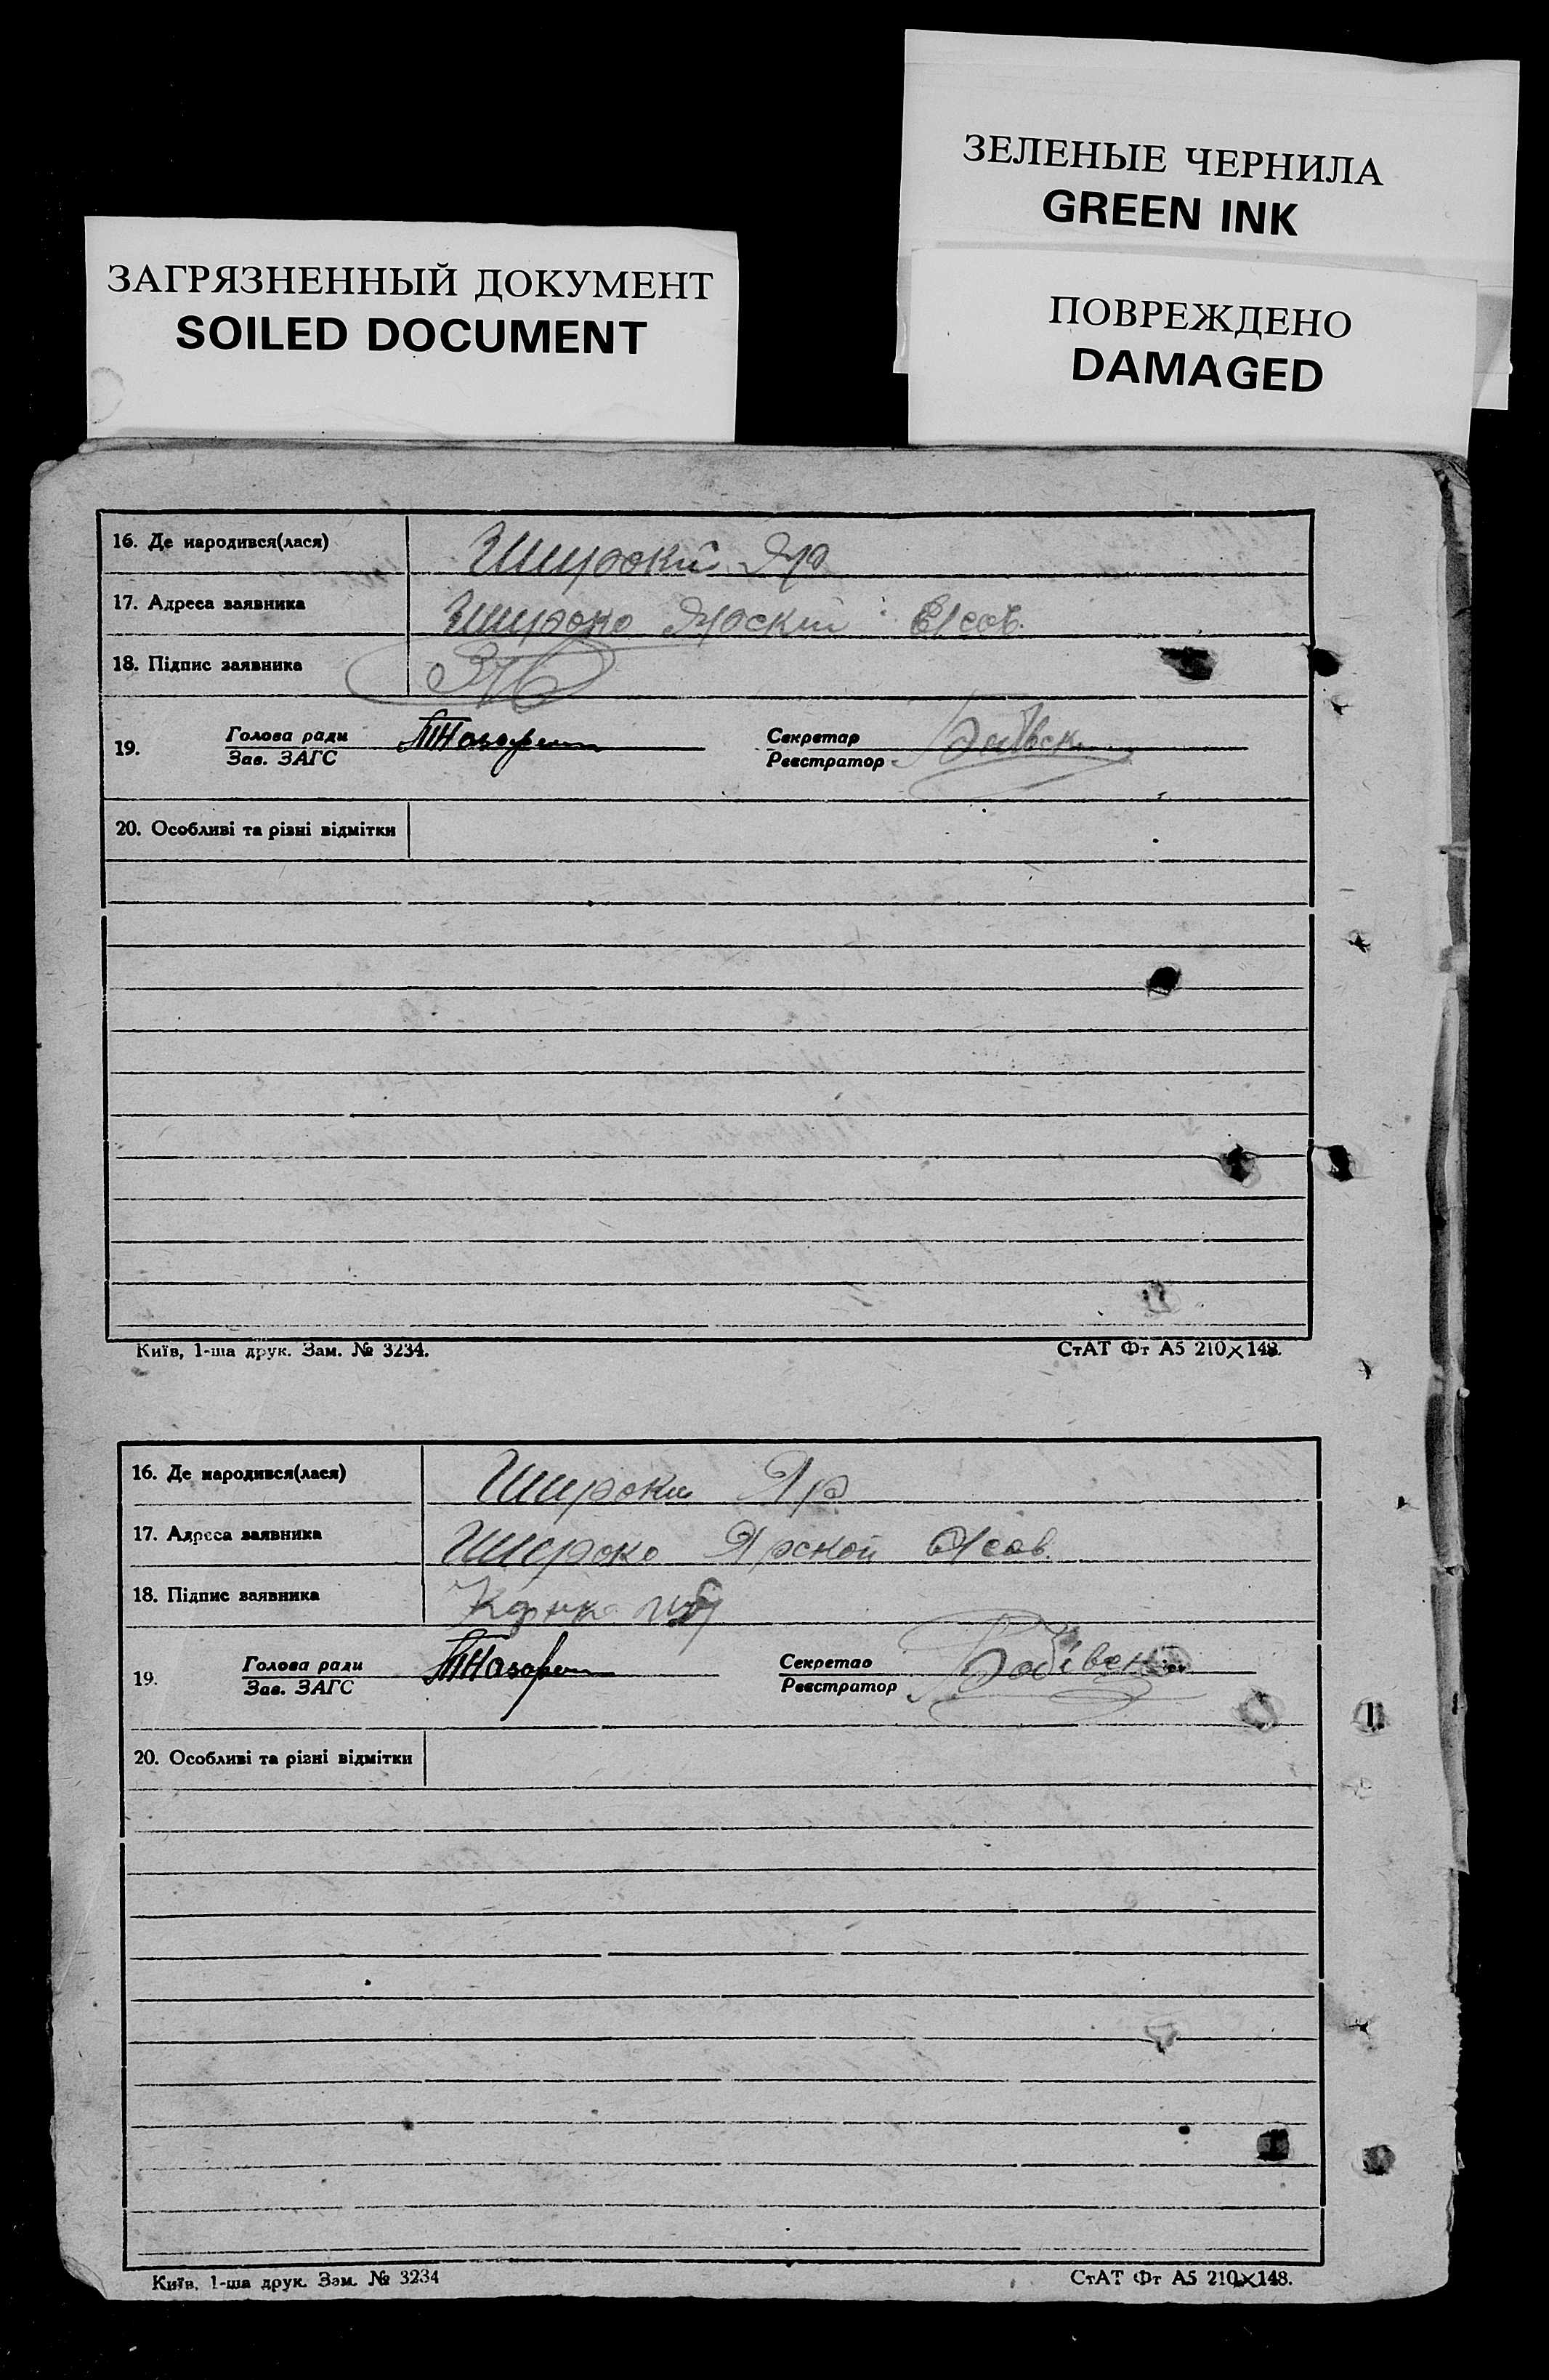 ЗЕЛЕНЫЕ ЧЕРНИЛА
GREEN INK
ЗАГРЯЗНЕННЫЙ ДОКУМЕНТ
SOILED DOCUMENT
ПОВРЕЖДЕНО
DAMAGED
16. Де народився(лася) Широкий Яр
17. Адреса заявника Широко Ярский
18. Підпис заявника
19. Голова ради Секретар
Зав. ЗАГС Реєстратор
20. Особливі та різні відмітки
Київ, 1-ша друк. Зам. № 3234. СтАТ Фт А5 210×148.
16. Де народився(лася) Широки Яр
17. Адреса заявника Широко Ярской
18. Підпис заявника
19. Голова ради Секретар
Зав. ЗАГС Реєстратор
20. Особливі та різні відмітки
Київ, 1-ша друк. Зам. № 3234 СтАТ Фт А5 210×148.